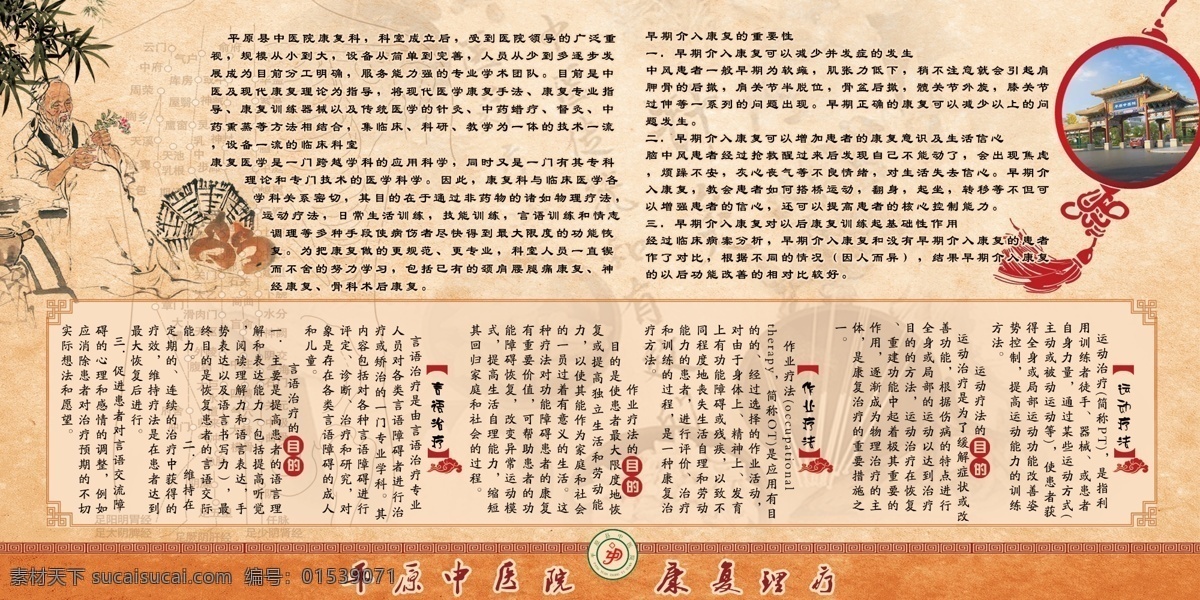 平原县中医院康复科,科室成立后,受到医院领导的广泛重
视,规模从小到大,设备从简单到完善,人员从少到多逐步发
展成为目前分工明确,服务能力强的专业学术团队。目前是中
医及现代康复理论为指导,将现代医学康复手法、康复专业指
导、康复训练器械以及传统医学的针灸、中药蜡疗、督灸、中
药熏蒸等方法相结合,集临床、科研、教学为一体的技术一流
,设备一流的临床科室
康复医学是一门跨越学科的应用科学,同时又是一门有其专科
理论和专门技术的医学科学。因此,康复科与临床医学各
学科关系密切,其目的在于通过非药物的诸如物理疗法,
运动疗法,日常生活训练,技能训练,言语训练和情志
调理等多种手段使病伤者尽快得到最大限度的功能恢
复。为把康复做的更规范、更专业,科室人员一直锲
而不舍的努力学习,包括已有的颈肩腰腿痛康复、神
经康复、骨科术后康复。
早期介入康复的重要性
一.早期介入康复可以减少并发症的发生
中风患者一般早期为软瘫,肌张力低下,稍不注意就会引起肩
胛骨的后撤,肩关节半脱位,骨盆后撤,髋关节外旋,膝关节
过伸等一系列的问题出现。早期正确的康复可以减少以上的问
题发生。
二.早期介入康复可以增加患者的康复意识及生活信心
脑中风患者经过抢救醒过来后发现自己不能动了,会出现焦虑
,烦躁不安,灰心丧气等不良情绪,对生活失去信心。早期介
入康复,教会患者如何搭桥运动,翻身,起坐,转移等不但可
以增强患者的信心,还可以提高患者的核心控制能力。
三.早期介入康复对以后康复训练起基础性作用
经过临床病案分析,早期介入康复和没有早期介入康复的患者
作了对比,根据不同的情况(因人而异),结果早期介入康复
的以后功能改善的相对比较好。
【运动疗法】
运动治疗(简称PT),是指利
用训练者徒手、器械、或患者
自身力量,通过某些运动方式(
主动或被动运动等),使患者获
得全身或局部运动功能改善姿
势控制,提高运动能力的训练
方法。
运动疗法的目的
运动治疗是为了缓解症状或改
善功能,根据伤病的特点进行
全身或局部的运动以达到治疗
目的的方法,运动治疗在恢复
、重建功能中起着极其重要的
作用,逐渐成为物理治疗的主
体,是康复治疗的重要措施之
一。
【作业疗法】
作业疗法(occupational
therapy,简称OT)是应用有目
的的、经过选择的作业活动,
对由于身体上、精神上、发育
上有功能障碍或残疾,以致不
同程度地丧失生活自理和劳动
能力的患者,进行评价、治疗
和训练的过程,是一种康复治
疗方法。
作业疗法的目的
目的是使患者最大限度地恢
复或提高独立生活和劳动能
力,以使其能作为家庭和社会
的一员过着有意义的生活。这
种疗法对功能障碍患者的康复
有重要价值,可帮助患者的功
能障碍恢复,改变异常运动模
式,提高生活自理能力,缩短
其回归家庭和社会的过程。
【言语治疗】
言语治疗是由言语治疗专业
人员对各类言语障碍者进行治
疗或矫治的一门专业学科。其
内容包括对各种言语障碍进行
评定、诊断、治疗和研究,对
象是存在各类言语障碍的成人
和儿童。
言语治疗的目的
一、主要是提高患者的语言理
解和表达能力(包括提高听觉
,阅读理解能力和语言表达,手
势表达以及语言书写力),最
终目的是恢复患者的言语交际
能力。 二、维持在
定期的、连续的治疗中获得的
疗效,维持疗法是在患者达到
最大恢复后进行。
三、促进患者对言语交流障
碍的心理和感情的调整,例如
应消除患者对治疗预期的不切
实际想法和愿望。
足阳明胃经
足太阴脾经
足厥阴肝经
任脉
足少阴肾经
平原中医院 康复理疗
素材天下 sucaisucai.com 编号:01539071